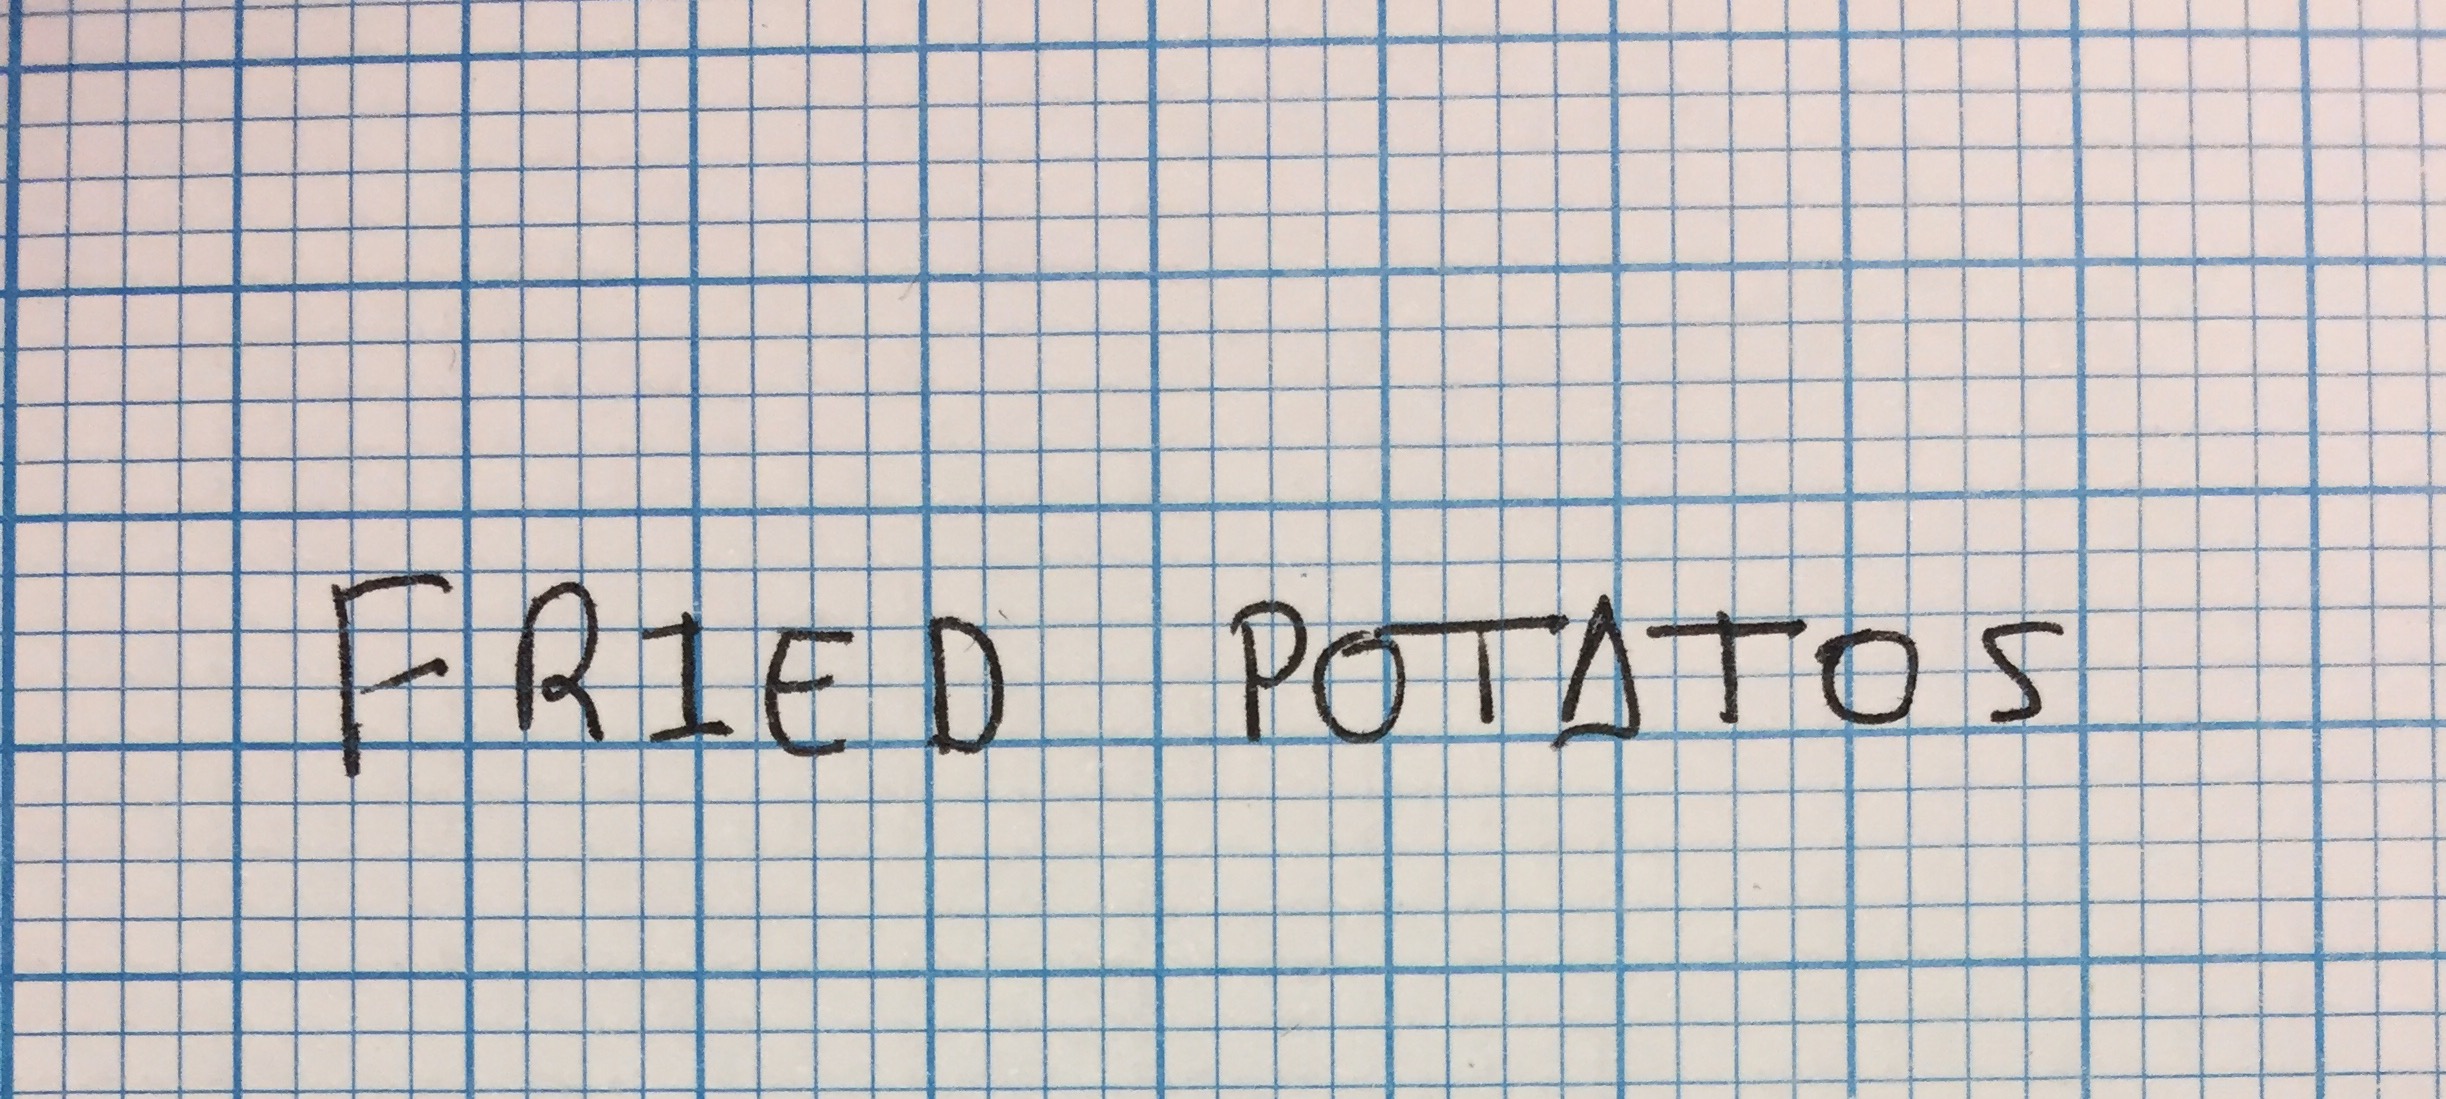 FRIED POTATOS